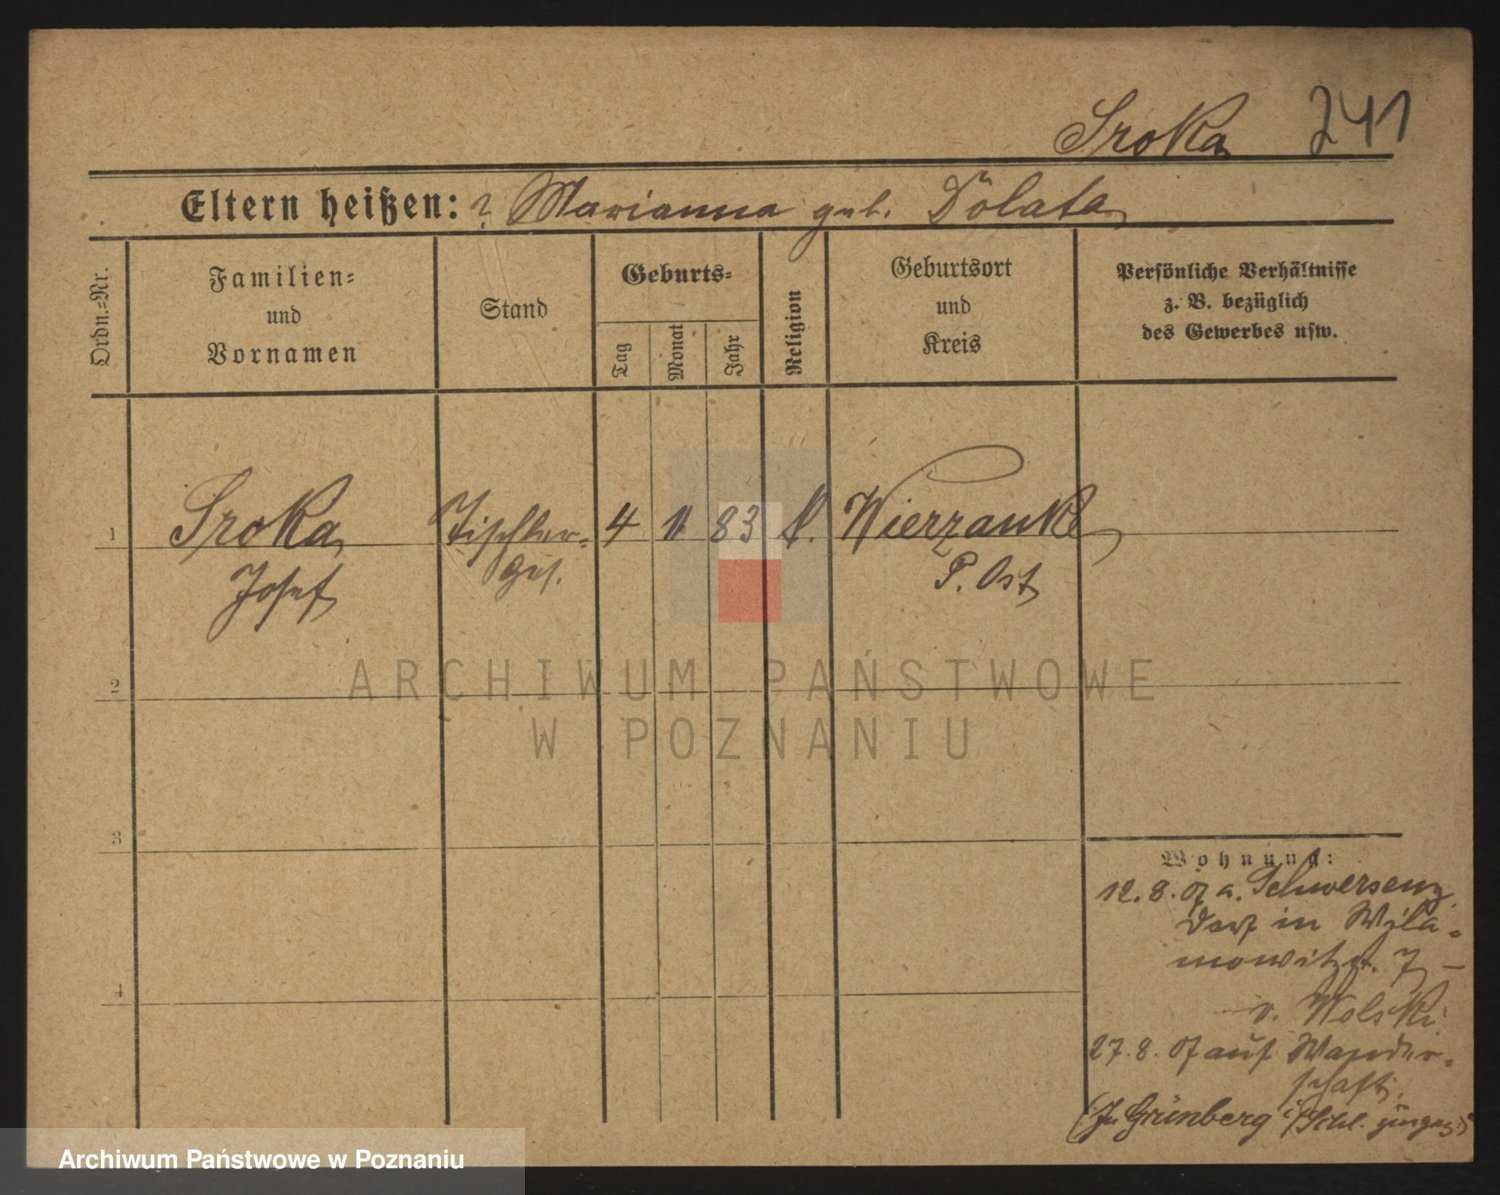 Sroka 241
Eltern heißen: ? Marianna geb. Dolata
Ordn.-Nr.
Familien-
und
Vornamen
Stand
Geburts-
Tag
Monat
Jahr
Religion
Geburtsort
und
Kreis
Persönliche Verhältnisse
z. B. bezüglich
des Gewerbes usw.
1 Sroka Tischler- 4 11 83 k. Wierzonke
Josef Ges. P. Ost
2
3
4
Wohnung:
12.8.07 a. Schwersenz
Dorf in Wila-
mowitzst. 7
v. Wolski
27.8.07 auf Wander-
schaft.
Grünberg i/Schl.
ARCHIWUM PAŃSTWOWE
W POZNANIU
Archiwum Państwowe w Poznaniu